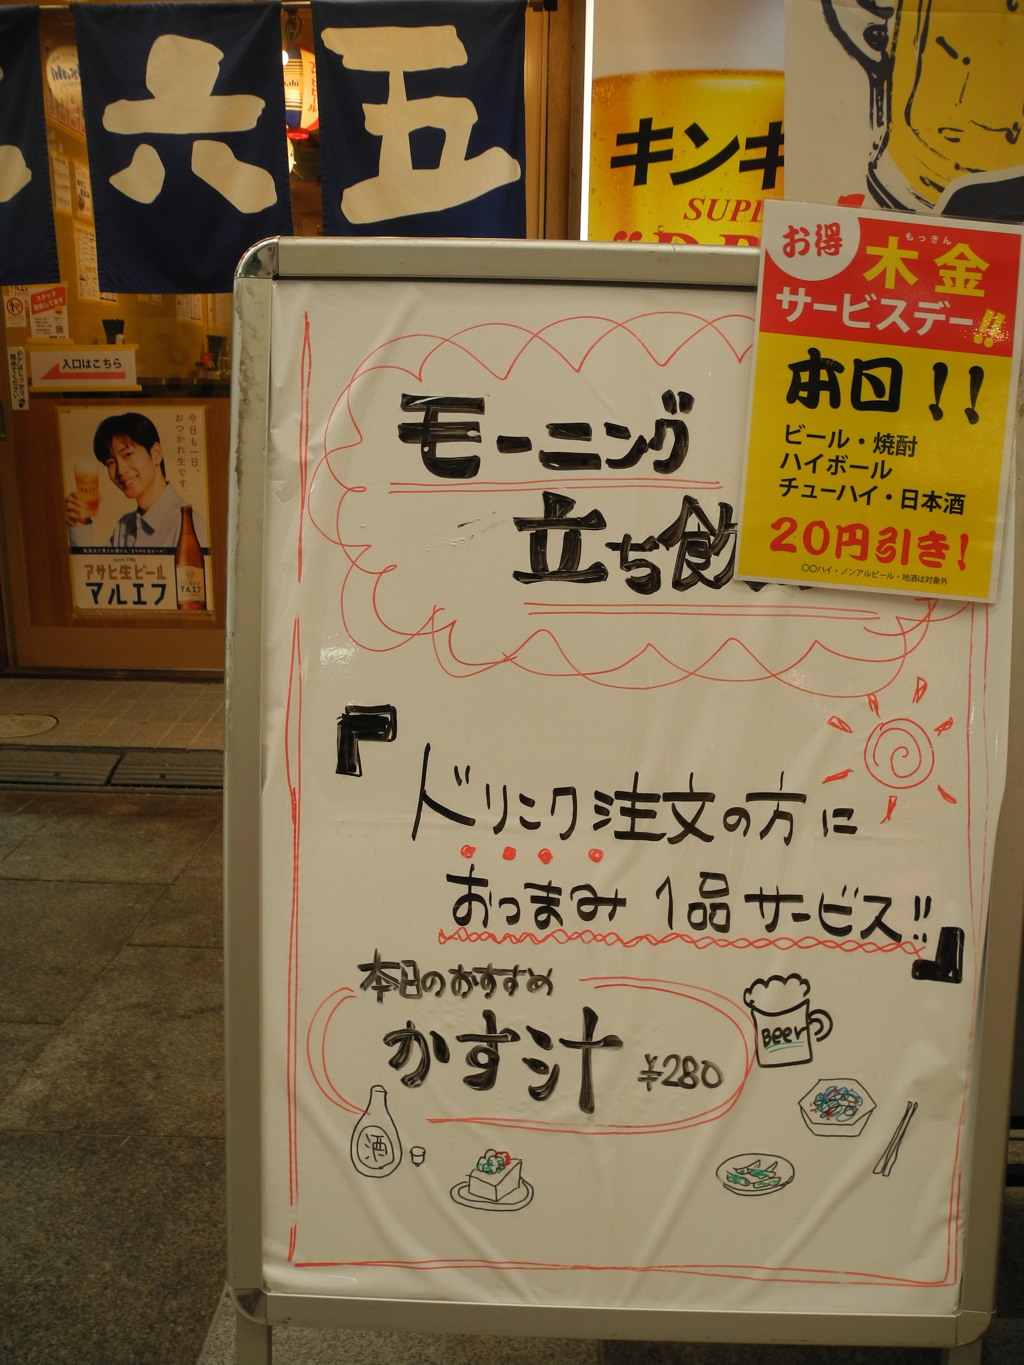 六
五
キンキ
SUPE
お得
もっきん
木金
サービスデー!!
本日!!
ビール・焼酎
ハイボール
チューハイ・日本酒
20円引き!
〇〇ハイ・ノンアルビール・地酒は対象外
入口はこちら
今日も一日、
おつかれ生です。
アサヒ生ビール
マルエフ
モーニング
立ち飲
『ドリンク注文の方に
おつまみ 1品サービス!!』
本日のおすすめ
かす汁 ¥280
Beer
酒